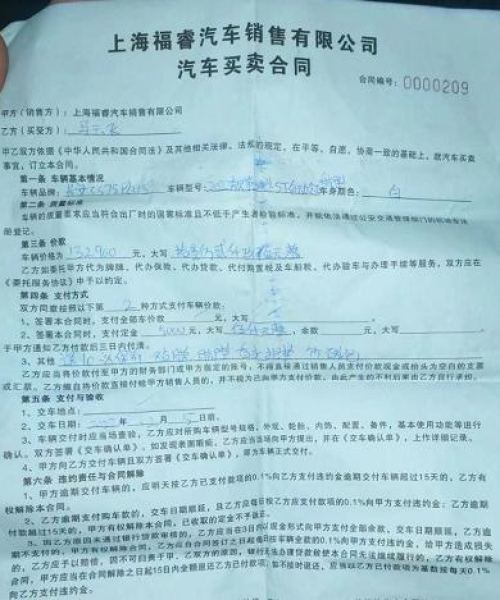 上海福睿汽车销售有限公司
汽车买卖合同
合同编号：0000209
甲方（销售方）：上海福睿汽车销售有限公司
乙方（买受方）：
甲乙双方依据《中华人民共和国合同法》及其他相关法律、法规的规定，在平等、自愿、协商一致的基础上，就汽车买卖
事宜，订立本合同。
第一条 车辆基本情况
车辆品牌：长安CS75PLUS 车辆型号： 车身颜色：白
第二条 质量标准
车辆的质量要求应当符合出厂时的国家标准且不低于产生者检验标准，并能依法通过公安交通管理部门的机动车注
册登记。
第三条 价款
车辆价格为 132900 元，大写
乙方如委托甲方代为牌牌、代办保险、代办贷款、代付购置税及车船税、代办验车与办理手续等服务，双方应在
《委托服务协议》中予以约定。
第四条 支付方式
双方同意按照以下第 2 种方式支付车辆价款：
1、签署本合同时，支付全部车价款 元，大写 元。
2、签署本合同时，支付定金 5000 元，大写 伍仟元整，余款 元，大写 元，
于甲方通知乙方付款后三日内付清。
3、其他
乙方应当将价款付至甲方的财务部门或甲方指定的账号，不得直接通过销售人员支付价款现金或抬头为空白的支票
或汇票。乙方擅自将价款直接付给甲方销售人员的，并不视为已向甲方支付价款，由此产生的不利后果由乙方自行承担。
第五条 支付与验收
1、交车地点：
2、交车日期： 年 月 5 日前。
3、车辆交付时应当场查验，乙方应对所购车辆型号规格、外观、轮胎、内饰、配置、备件、基本使用功能等进行
确认。双方签署《交车确认单》，如发现表面瑕疵，乙方应当当场向甲方提出，并在《交车确认单》，上作详细记录。
4、甲方向乙方交付车辆且双方签署《交车确认单》，即为车辆正式交付。
第六条 违约责任与合同解除
1、甲方逾期交付车辆的，应明天按乙方已支付款项的0.1%向乙方支付违约金逾期交付车辆超过15天的，乙方有
权解除本合同。
2、乙方逾期支付购车款的，交车日期顺延，且乙方应每日按乙方应支付款项的0.1%向甲方支付违约金；乙方逾期
付款超过15天的，甲方有权解除本合同，已收取的定金不予退还。
3、因乙方原因未通过银行贷款审核的，乙方应当在3日内以现金形式向甲方支付全部余款，交车日期顺延，乙方逾
期不支付的，甲方有权解除合同，乙方应自合同签订之日起每日按车辆全款的0.1%向甲方支付违约金，给甲方造成损失
的，乙方应予以赔偿，因不可归责于甲、乙双方的原因，银行无法办理贷款致使本合同无法继续履行的，乙方有权解除
合同，甲方应当在合同解除之日起15日内全额退还乙方已付款项，如不按时退还，应当以乙方已付款项为基数按每天0.1%
向乙方支付违约金。